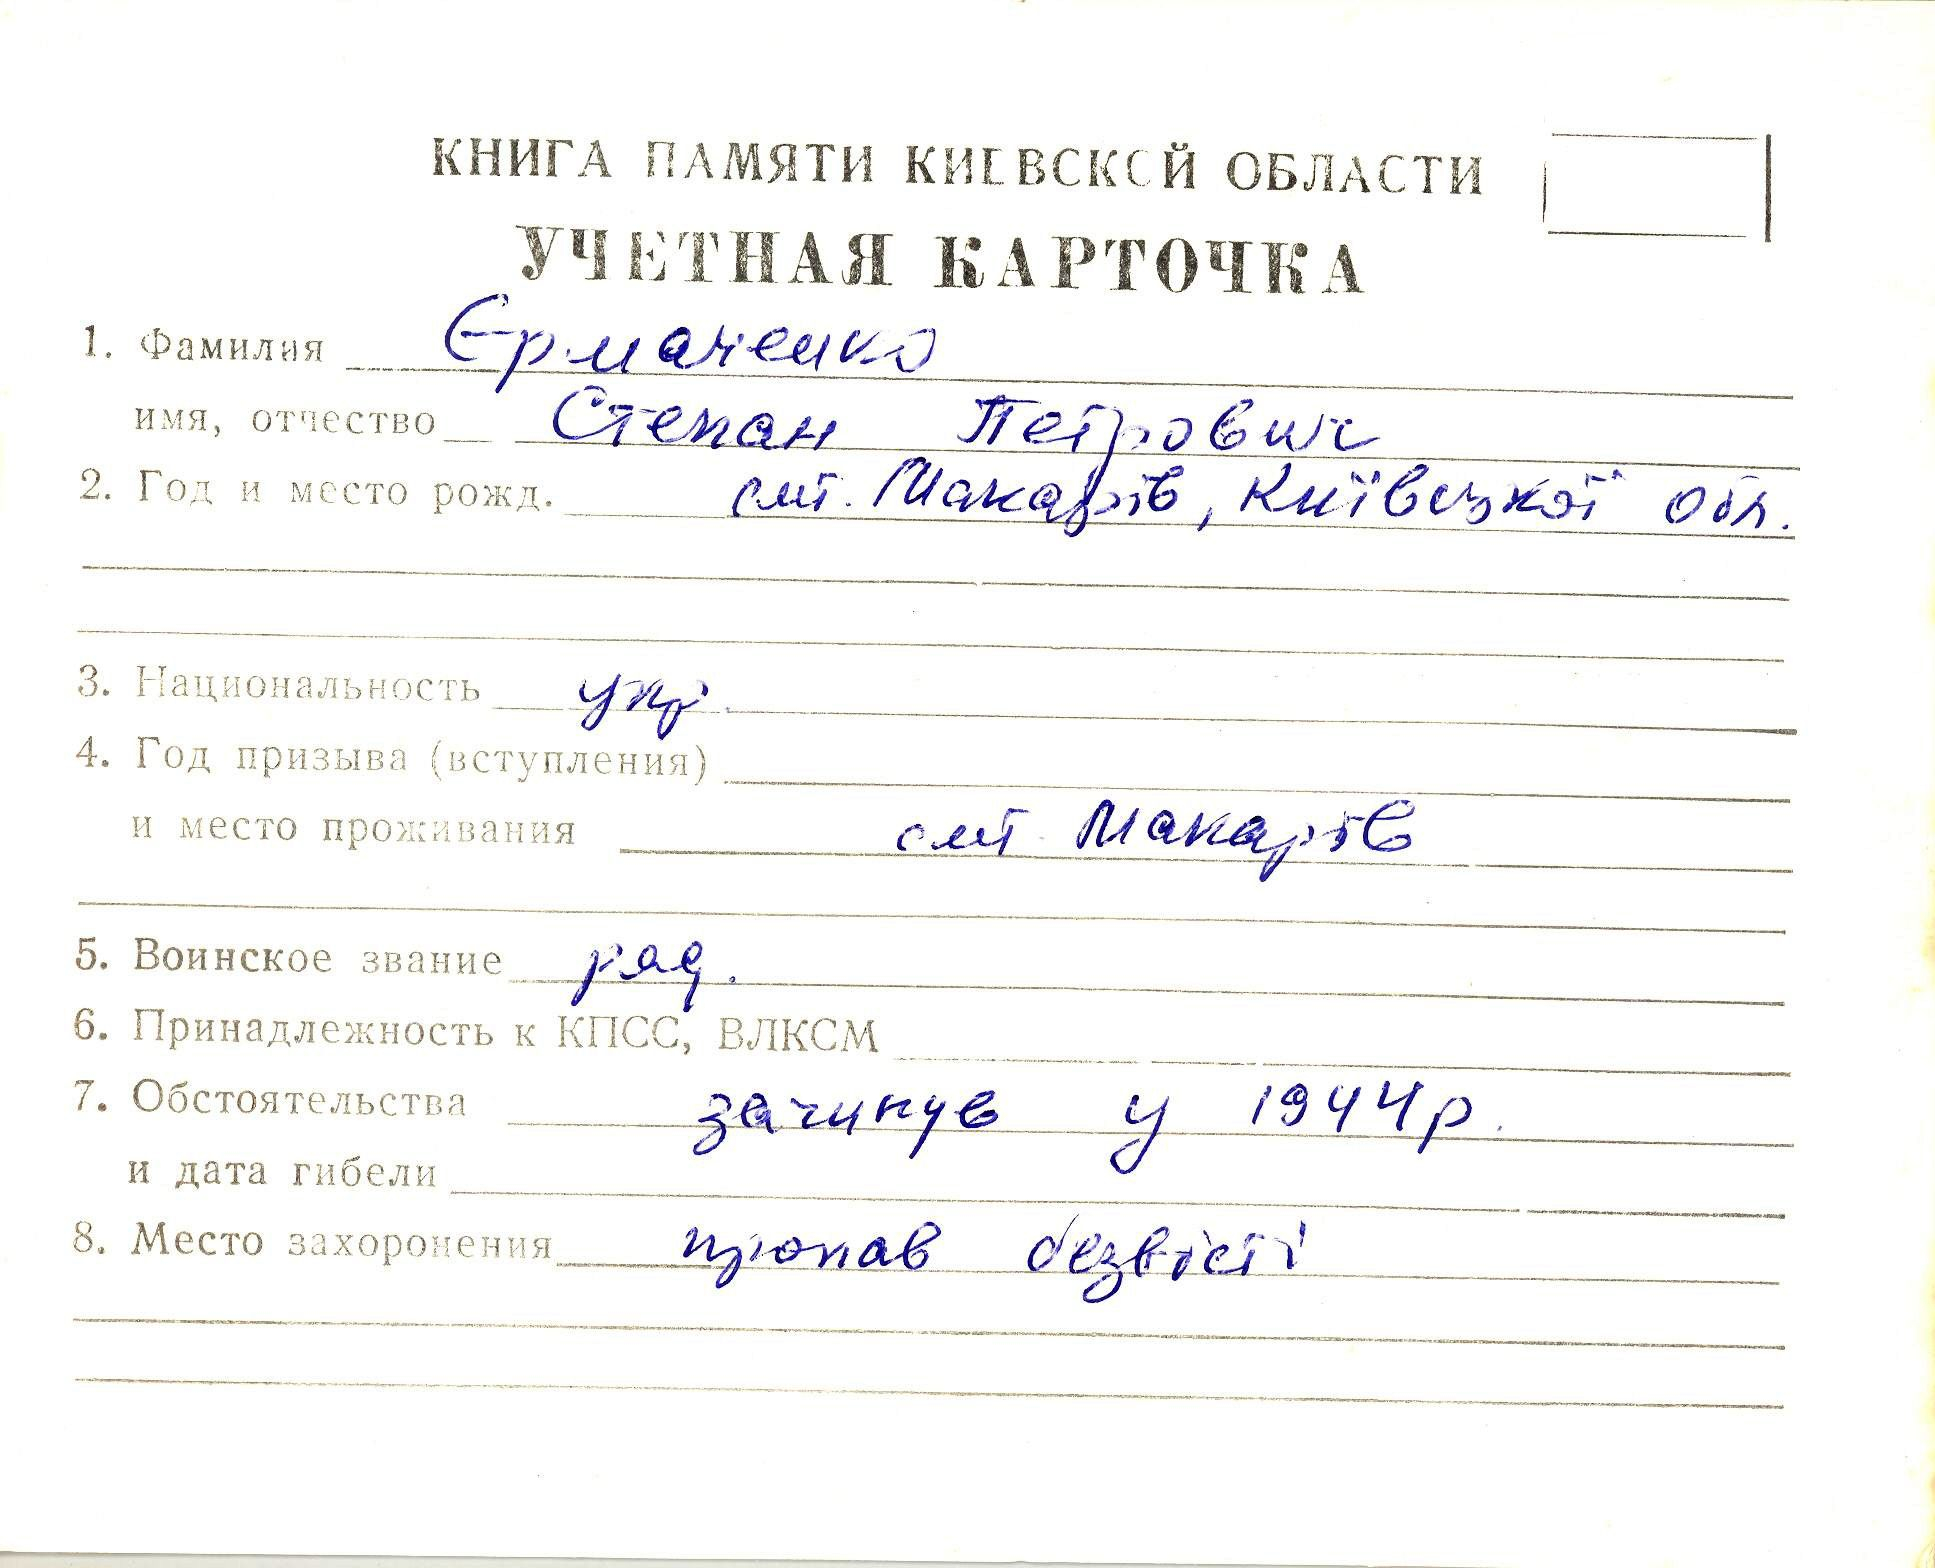 КНИГА ПАМЯТИ КИЕВСКОЙ ОБЛАСТИ
УЧЕТНАЯ КАРТОЧКА
1. Фамилия Єрмаченко
имя, отчество Степан Петрович
2. Год и место рожд. смт. Макарів, Київської обл.
3. Национальность укр.
4. Год призыва (вступления)
и место проживания смт. Макарів
5. Воинское звание ряд.
6. Принадлежность к КПСС, ВЛКСМ
7. Обстоятельства загинув у 1944 р.
и дата гибели
8. Место захоронения пропав безвісті